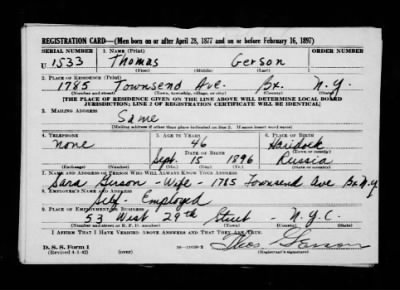 REGISTRATION CARD—(Men born on or after April 28, 1877 and on or before February 16, 1897)
SERIAL NUMBER 1. NAME (Print) ORDER NUMBER
U 1533 Thomas Gerson
(First) (Middle) (Last)
2. PLACE OF RESIDENCE (Print)
1785 Townsend Ave. Bx. N.Y.
(Number and street) (Town, township, village, or city) (County) (State)
[THE PLACE OF RESIDENCE GIVEN ON THE LINE ABOVE WILL DETERMINE LOCAL BOARD
JURISDICTION; LINE 2 OF REGISTRATION CERTIFICATE WILL BE IDENTICAL]
3. MAILING ADDRESS
Same
(Mailing address if other than place indicated on line 2. If same insert word same)
4. TELEPHONE 5. AGE IN YEARS 6. PLACE OF BIRTH
none 46
DATE OF BIRTH
Sept. 15 1896 Russia
(Exchange) (Number) (Mo.) (Day) (Yr.) (State or country)
7. NAME AND ADDRESS OF PERSON WHO WILL ALWAYS KNOW YOUR ADDRESS
Sara Gerson - Wife - 1785 Townsend Ave Bx N.Y
8. EMPLOYER'S NAME AND ADDRESS
Self-Employed
9. PLACE OF EMPLOYMENT OR BUSINESS
53 West 29th Street - N.Y.C.
(Number and street or R. F. D. number) (Town) (County) (State)
I AFFIRM THAT I HAVE VERIFIED ABOVE ANSWERS AND THAT THEY ARE TRUE.
D. S. S. Form 1
(Revised 4-1-42) (Registrant's signature)